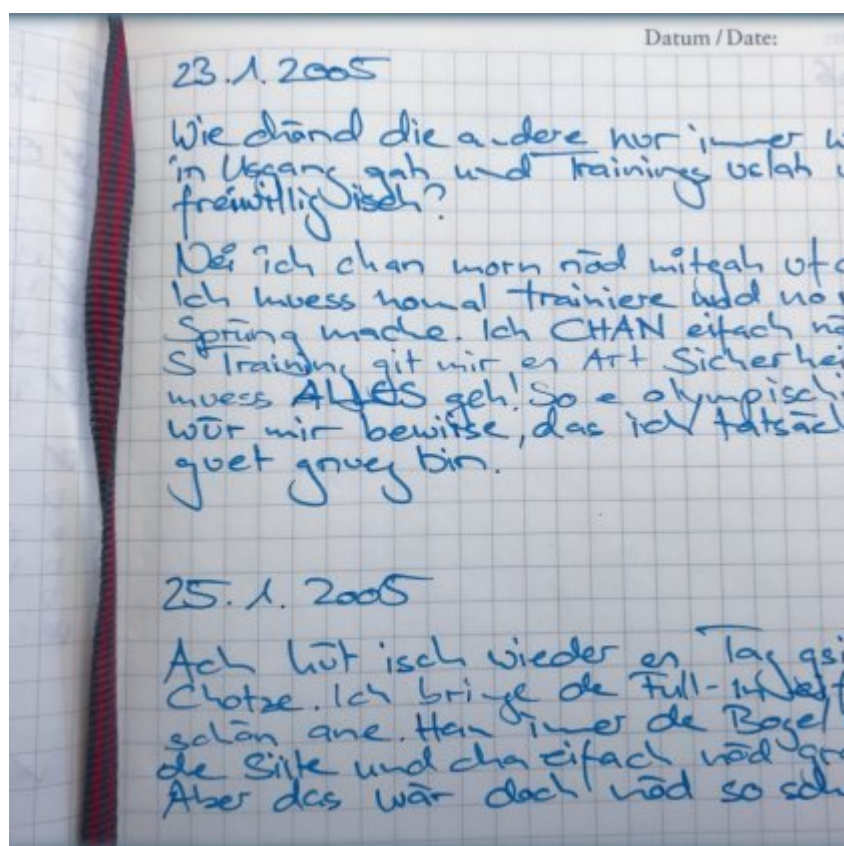 Datum / Date:
23.1.2005
Wie chönd die andere nur immer
in Usgang gah und Trainings uslah
freiwillig isch?
Nei ich chan morn nöd mitgah uf
Ich muess nomal trainiere und no
Sprüng mache. Ich CHAN eifach nö
S'Training git mir en Art Sicherhei
muess ALLES geh! So e olympischi
wür mir bewiise, das ich tatsäch
guet gnueg bin.
25.1.2005
Ach hüt isch wieder en Tag gsi
Chotze. Ich bringe de Full-In eif
schön ane. Han immer de Boge
de Siite und cha eifach nöd gra
Aber das wär doch nöd so sch